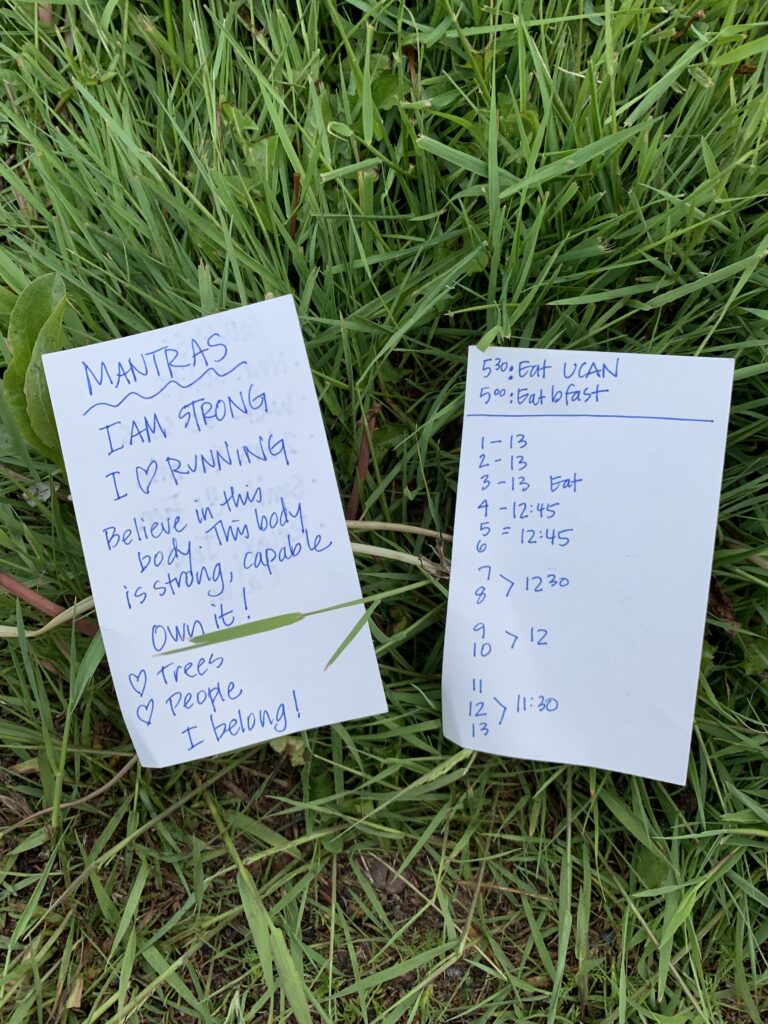 MANTRAS
I AM STRONG
I ♡ RUNNING
Believe in this
body. This body
is strong, capable
Own it!
♡ Trees
♡ People
I belong!
5³⁰: Eat UCAN
5⁰⁰: Eat bfast
1 - 13
2 - 13
3 - 13 Eat
4 - 12:45
5
6 = 12:45
7
8 > 1230
9
10 > 12
11
12 > 11:30
13